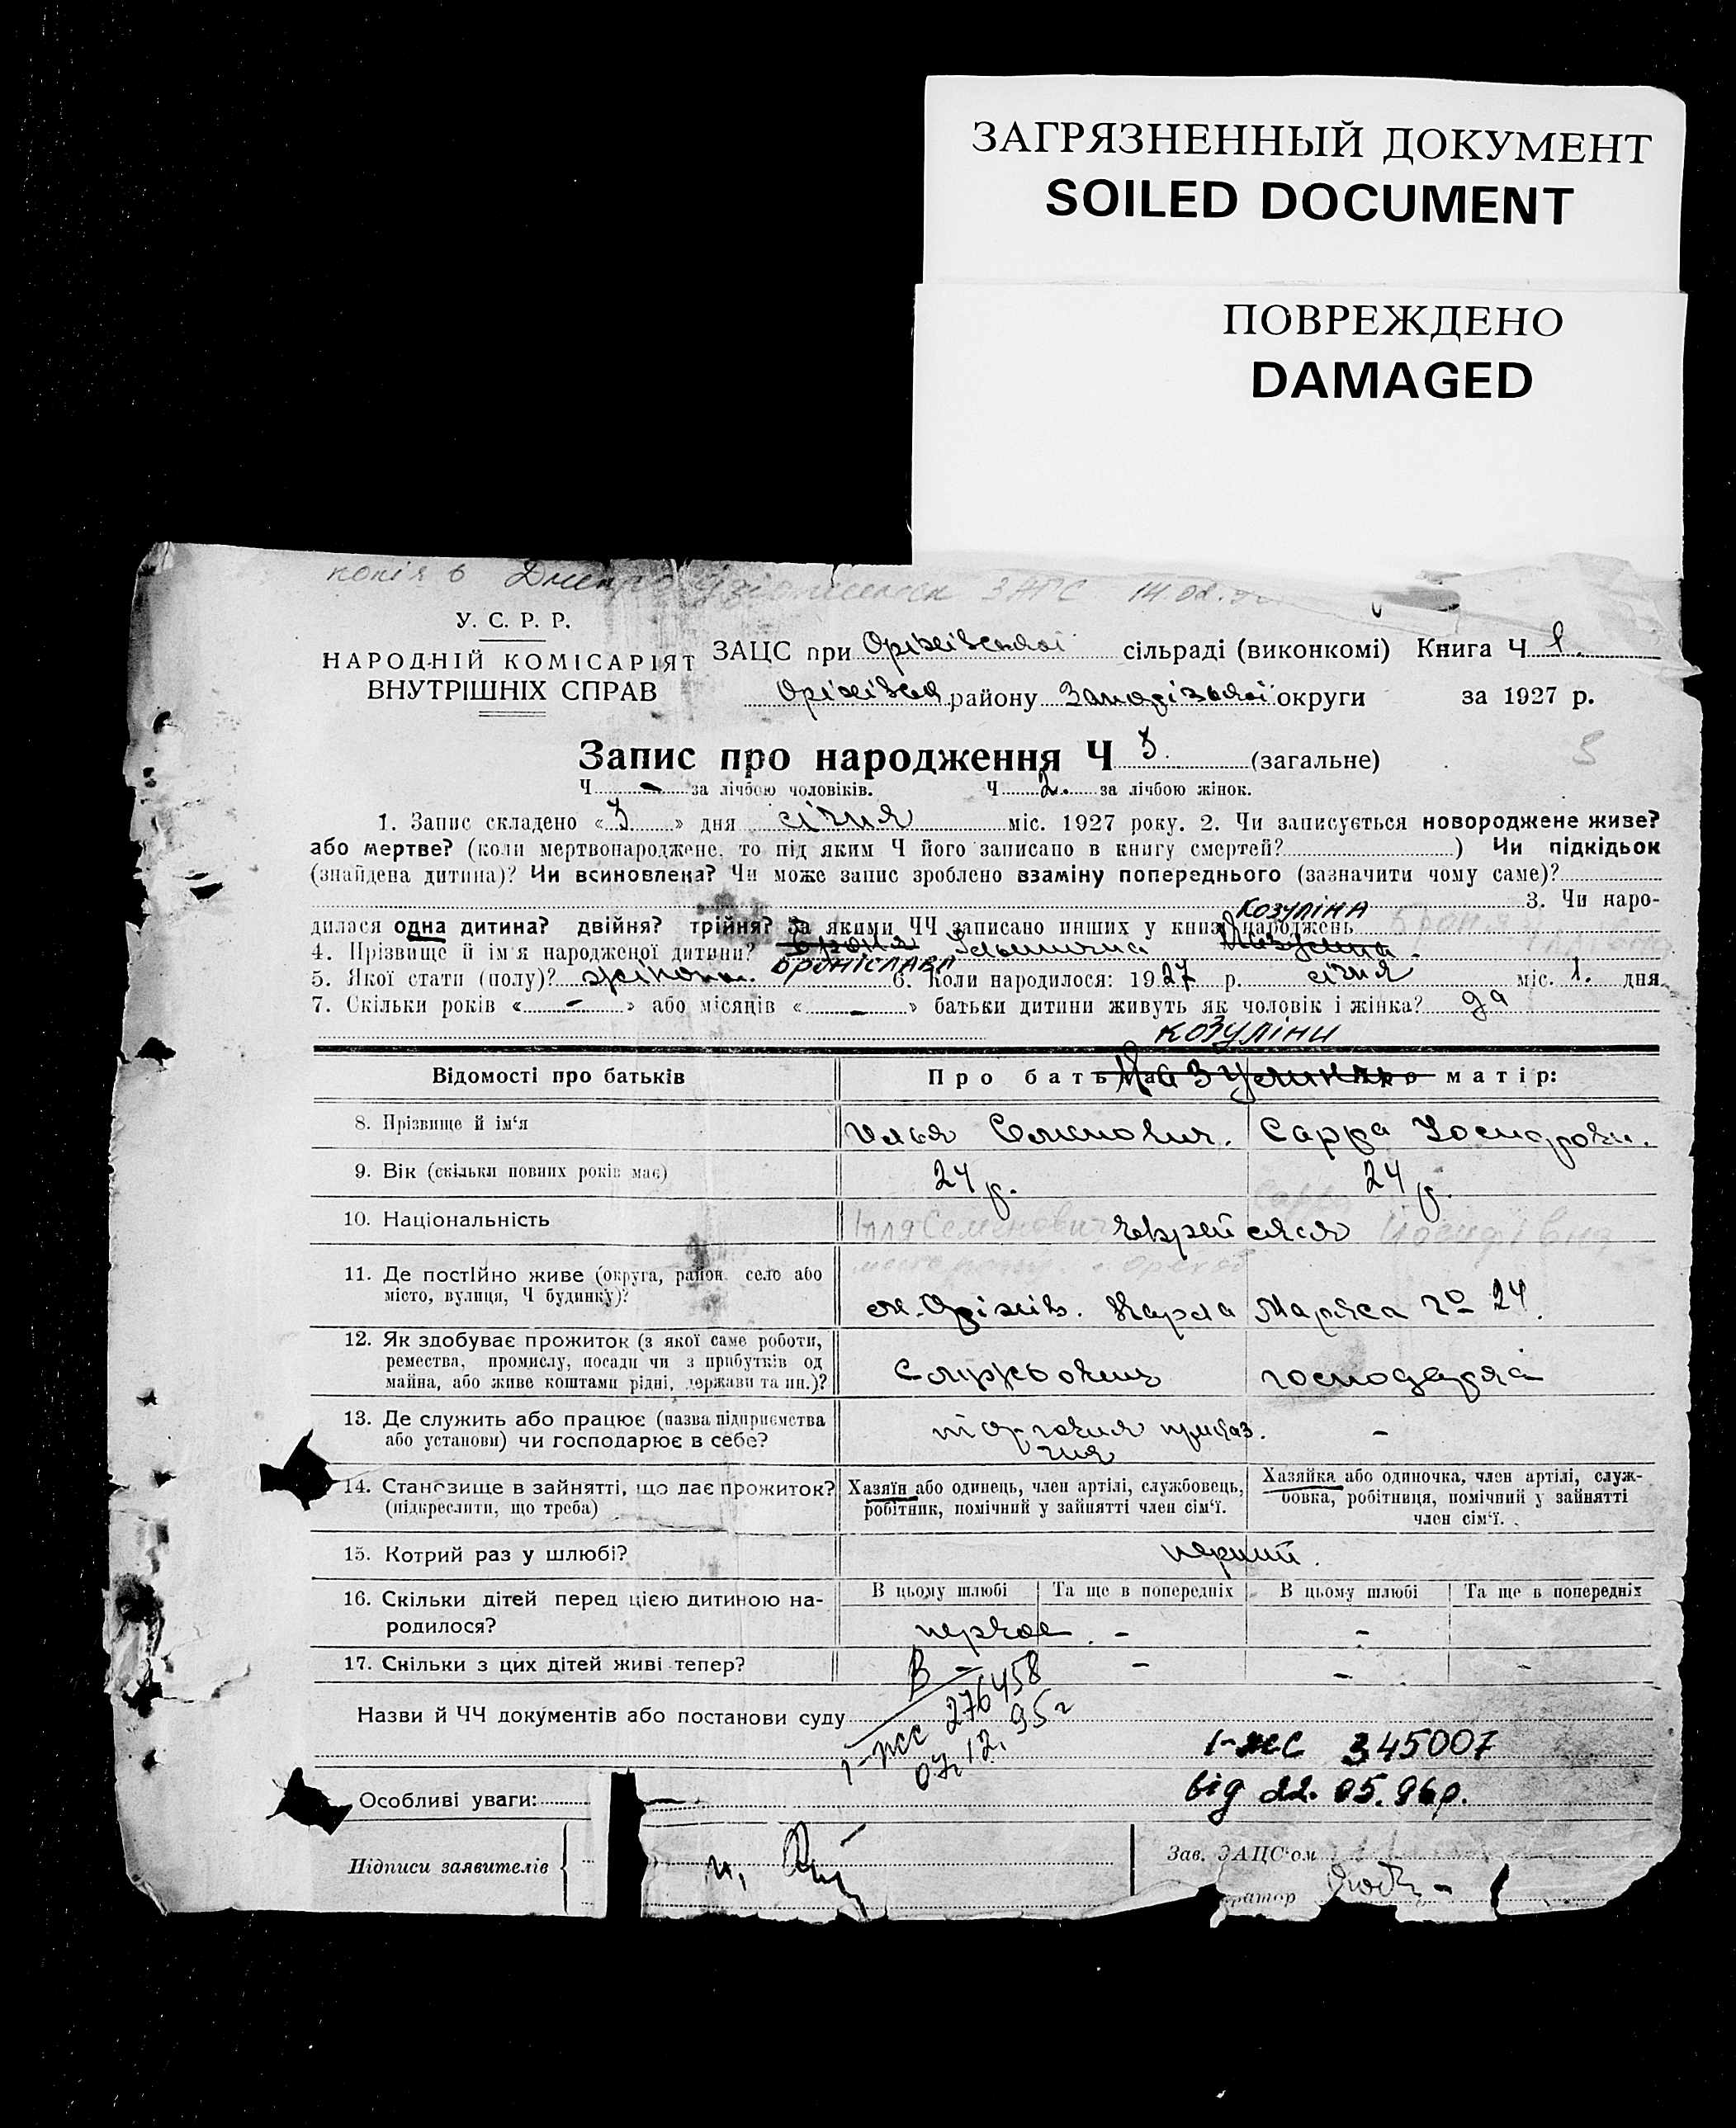 ЗАГРЯЗНЕННЫЙ ДОКУМЕНТ
SOILED DOCUMENT
ПОВРЕЖДЕНО
DAMAGED
копія в ЗАГС 14.02.
У. С. Р. Р.
НАРОДНІЙ КОМІСАРІЯТ
ВНУТРІШНІХ СПРАВ
ЗАЦС при Оріхівській сільраді (виконкомі) Книга Ч 1.
Оріхівськ району Запорізької округи за 1927 р.
Запис про народження Ч 3. (загальне)
3
Ч - за лічбою чоловіків. Ч 2. за лічбою жінок.
1. Запис складено «3» дня січня міс. 1927 року. 2. Чи записується новороджене живе?
або мертве? (коли мертвонароджене, то під яким Ч його записано в книгу смертей? ) Чи підкідьок
(знайдена дитина)? Чи всиновлена? Чи може запис зроблено взаміну попереднього (зазначити чому саме)?
3. Чи наро-
КОЗУЛІНА
дилася одна дитина? двійня? трійня? За якими ЧЧ записано инших у книзі народжень Броня
4. Прізвище й ім'я народженої дитини? Броня Ільінична Мазулина.
БРОНІСЛАВА
5. Якої стати (полу)? жіноча. 6. Коли народилося: 1927 р. січня міс. 1. дня
7. Скільки років «-» або місяців «-» батьки дитини живуть як чоловік і жінка? да
КОЗУЛІНИ
Відомості про батьків Про батька Мазулини Про матір:
8. Прізвище й ім'я Илья Семенович. Сарра Йосифовн.
9. Вік (скільки повних років має) 24 р. 24 р.
Сарра
10. Національність Ілля Семенович єврейська Йосифівна
11. Де постійно живе (округа, район, село або
місто, вулиця, Ч будинку)? м. Оріхів. Карла Маркса № 24.
12. Як здобуває прожиток (з якої саме роботи,
ремества, промислу, посади чи з прибутків од
майна, або живе коштами рідні, держави та ин.)? Службовец господарка
13. Де служить або працює (назва підприємства
або установи) чи господарює в себе? торговля приказ. -
чия
14. Становище в зайнятті, що дає прожиток?
(підкреслити, що треба)
Хазяїн або одинець, член артілі, службовець,
робітник, помічний у зайнятті член сім'ї.
Хазяйка або одиночка, член артілі, служ-
бовка, робітниця, помічний у зайнятті
член сім'ї.
15. Котрий раз у шлюбі? перший.
16. Скільки дітей перед цією дитиною на-
родилося?
В цьому шлюбі Та ще в попередніх В цьому шлюбі Та ще в попередніх
первое - -
17. Скільки з цих дітей живі тепер? - - - -
Назви й ЧЧ документів або постанови суду
В
1-ЖС 276458
07.12.95г
1-ЖС 345007
Особливі уваги: від 22.05.96р.
Підписи заявителів
Зав. ЗАЦС'ом
ратор